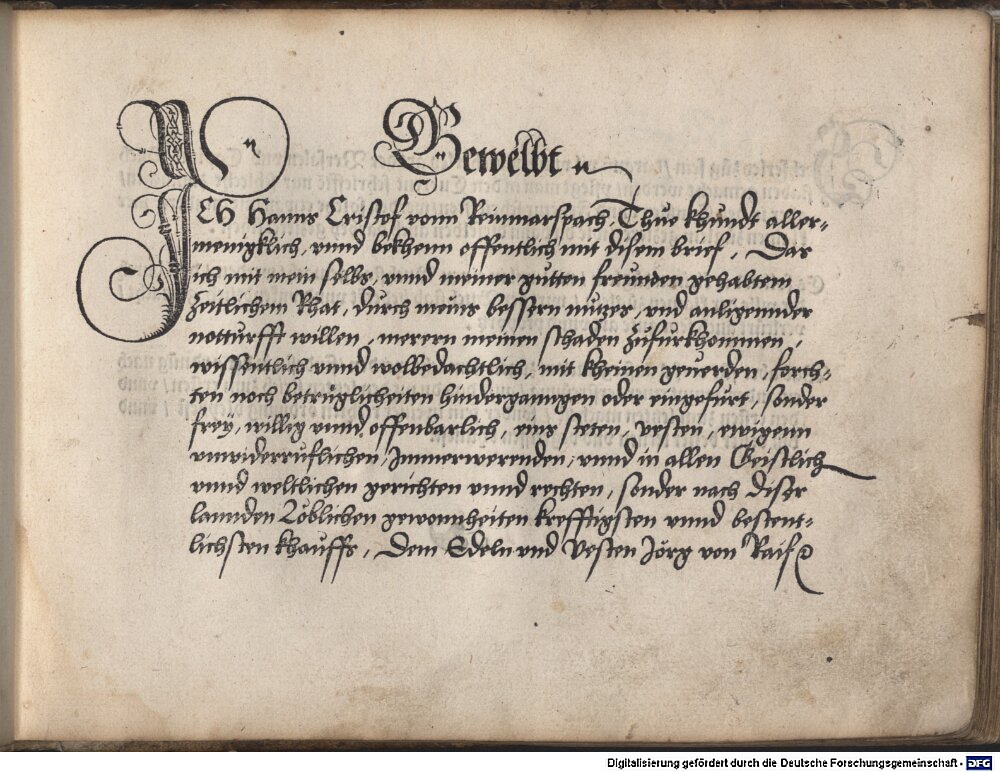 Gewelbt
ICH Hanns Cristof vonn Reinmarspach, Thue khundt aller-
menigklich, vnnd bekhenn offentlich mit disem brief, Das
ich mit mein selbs, vnnd meiner gutten freunden gehabtem
Zeitlichem Rhat, durch meins bessern nutzes, vnd anligennder
notturfft willen, merern meinen schaden Zufurkhommen,
wissentlich vnnd wolbedachtlich, mit kheinen geuerden, forch-
ten noch betruglicheiten hindergangen oder eingefurt, sonder
frey, willig vnnd offenbarlich, eins steten, vesten, ewigenn
vnwiderruflichen, Immerwerenden, vnnd in allen Geistlich
vnnd weltlichen gerichten vnnd rechten, sonder nach diser
lannden Löblichen gewonnheiten krefftigsten vnnd bestent-
lichsten khauffs, Dem Edeln vnd Vesten Jörg von Raiß
Digitalisierung gefördert durch die Deutsche Forschungsgemeinschaft - DFG